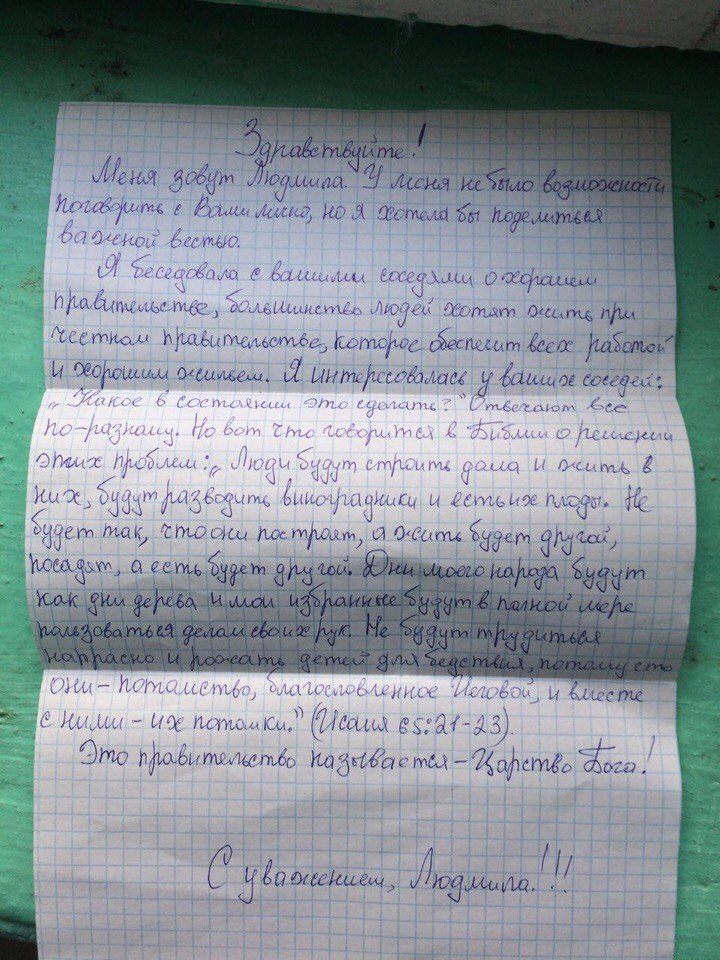 Здравствуйте!
Меня зовут Людмила. У меня не было возможности
поговорить с Вами лично, но я хотела бы поделиться
важной вестью.
Я беседовала с вашими соседями о хорошем
правительстве, большинство людей хотят жить при
честном правительстве, которое обеспечит всех работой
и хорошим жильем. Я интересовалась у ваших соседей:
„Какое в состоянии это сделать?" Отвечают все
по-разному. Но вот что говорится в Библии о решении
этих проблем: „Люди будут строить дома и жить в
них, будут разводить виноградники и есть их плоды. Не
будет так, что они построят, а жить будет другой,
посадят, а есть будет другой. Дни моего народа будут
как дни дерева и мои избранные будут в полной мере
пользоваться делам своих рук. Не будут трудиться
напрасно и рожать детей для бедствия, потому что
они – потомство, благословленное Иеговой, и вместе
с ними – их потомки." (Исаия 65:21-23).
Это правительство называется – Царство Бога!
С уважением, Людмила.!!!